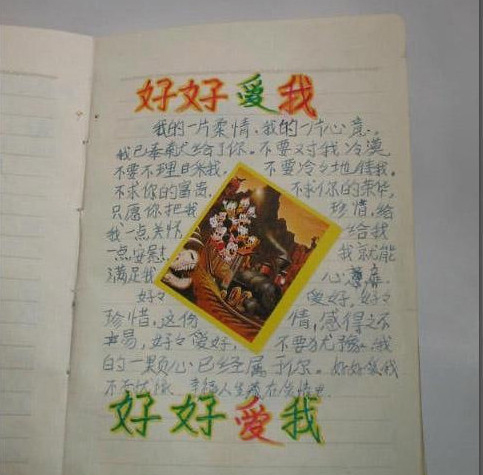 好好爱我
我的一片柔情、我的一片心意。
我已奉献给了你。不要对我冷漠
不要不理日我。 不要冷冷地待我。
不求你的富贵, 不求你的荣华,
只愿你把我 珍惜,给
我一点关怀 给我
一点安慰 我就能
满足我 心意
好々 爱好。好々
珍惜,这份 情,感得之不
易,好々爱好, 不要犹豫。我
的一颗心已经属于你。好好爱我
幸福人生藏在
好好爱我